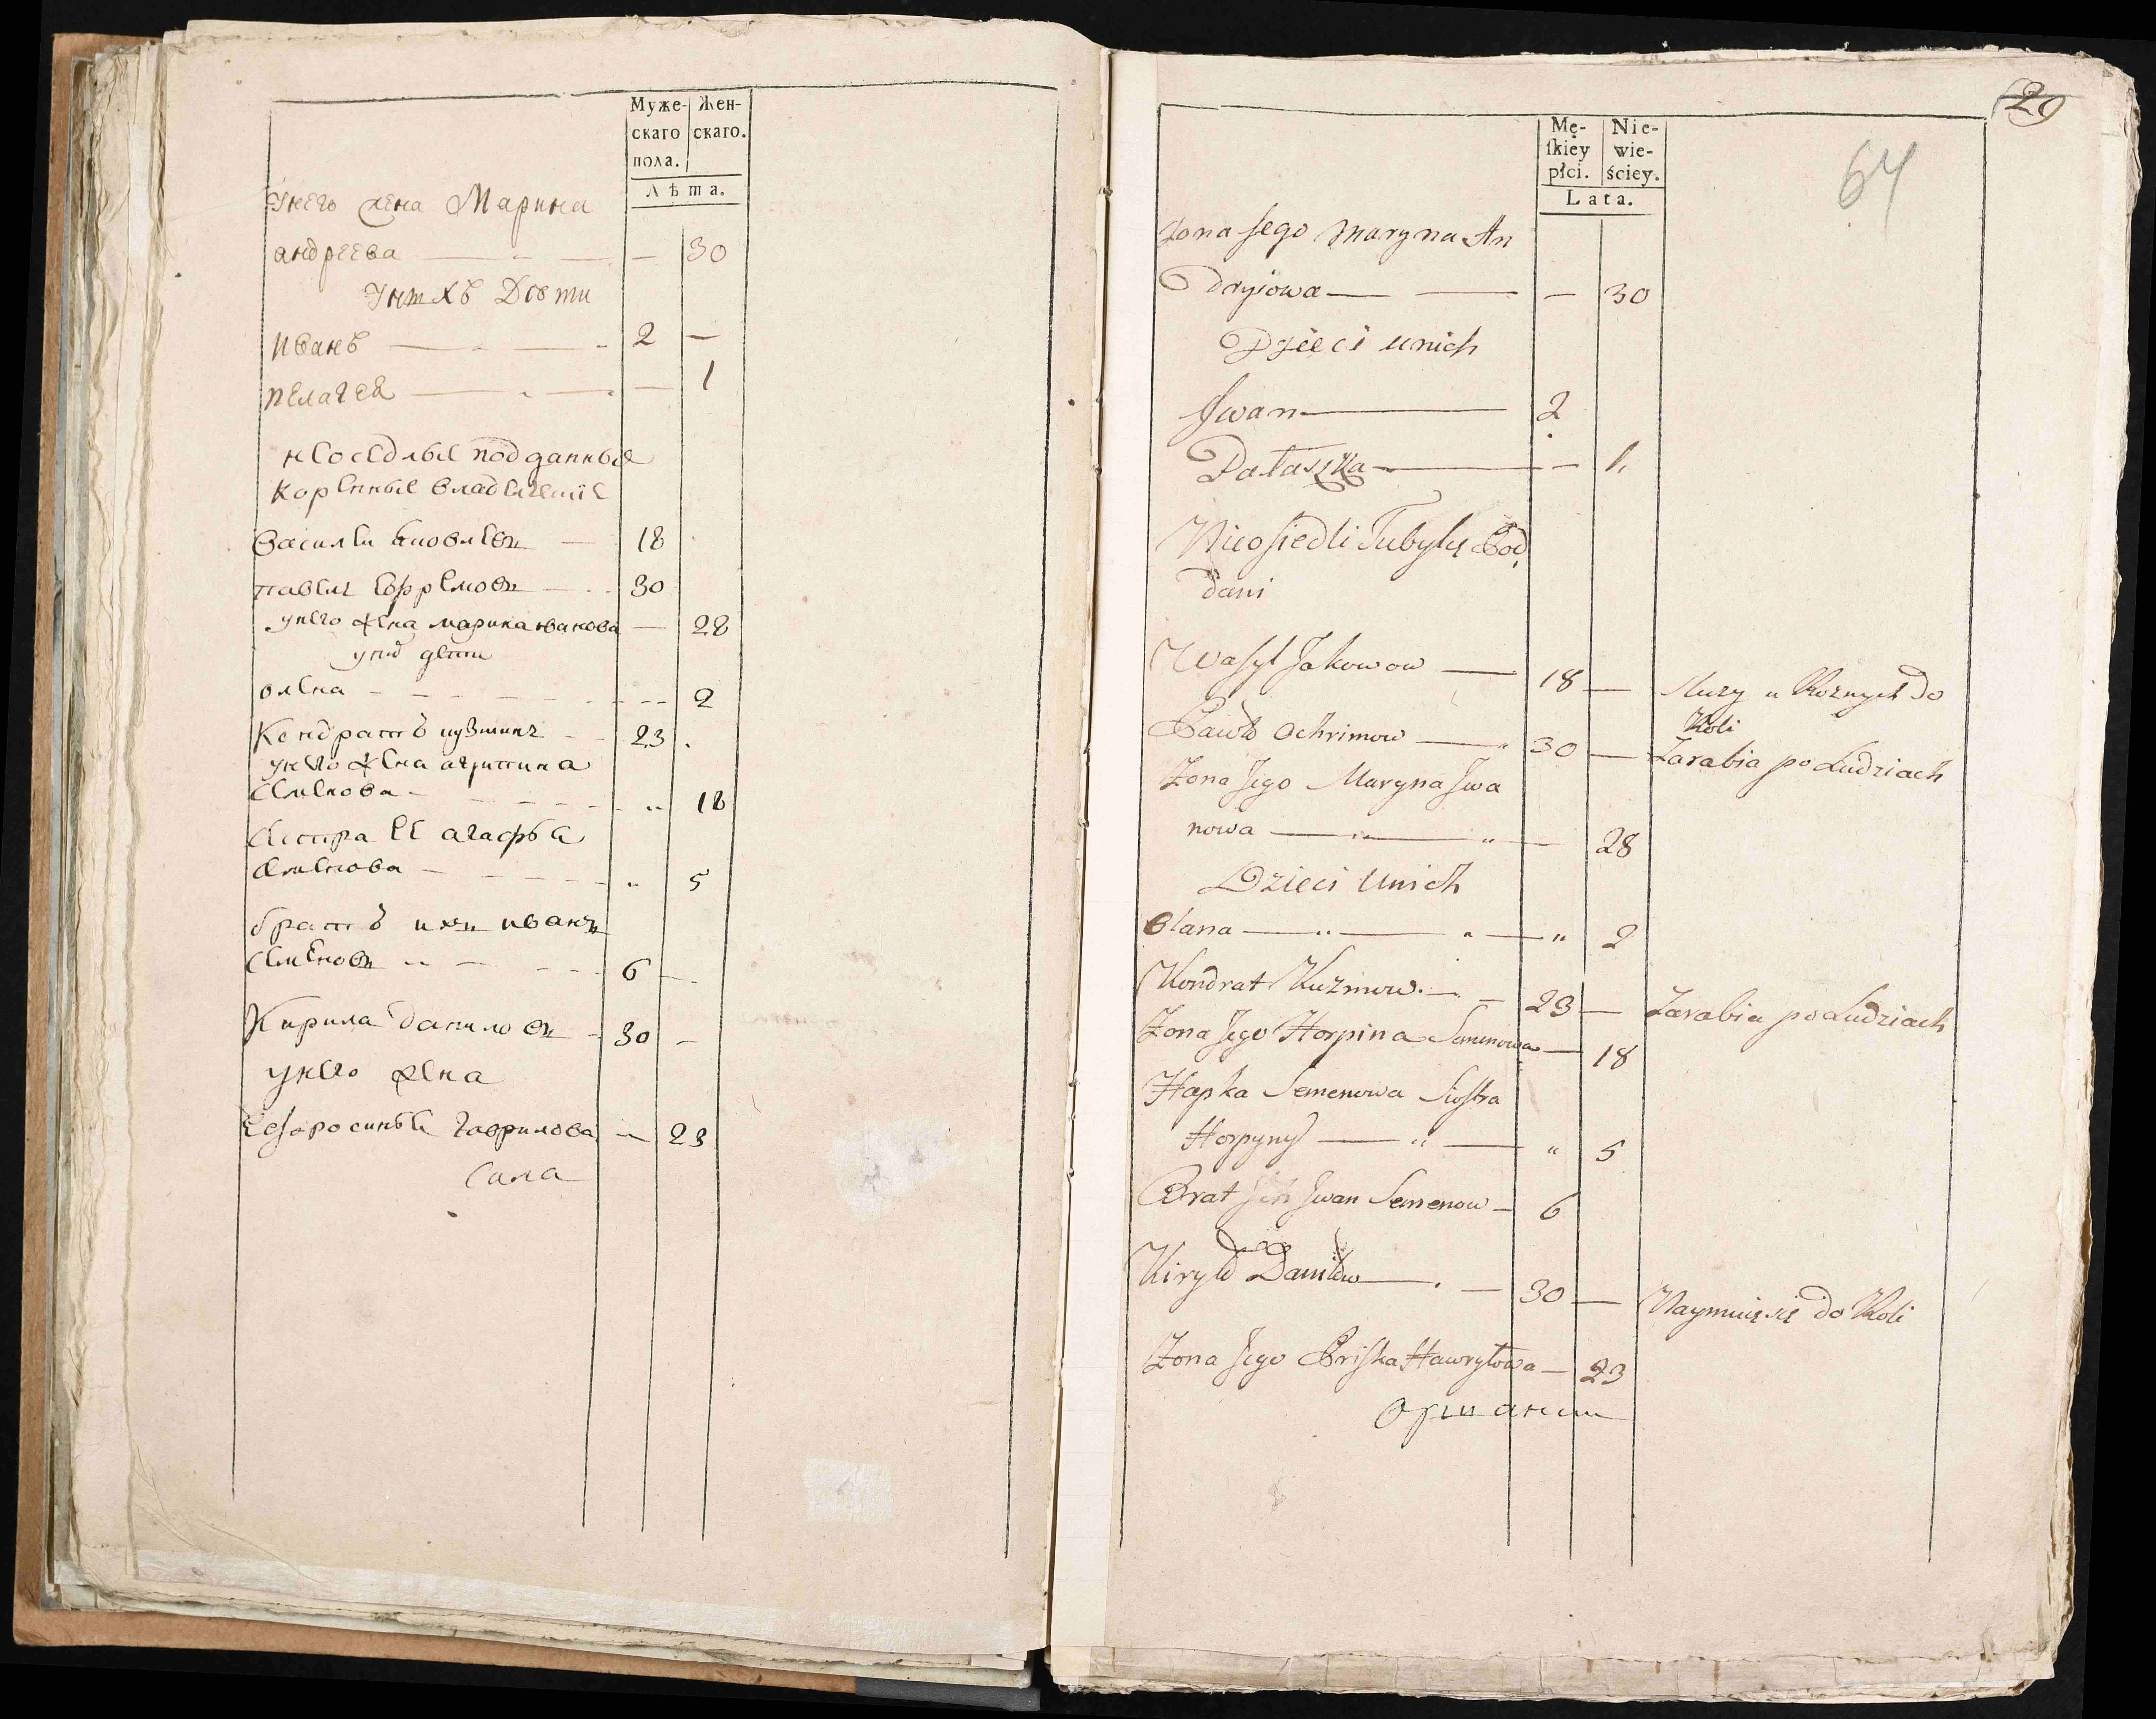 Муже- Жен-
скаго скаго.
пола.
Лѣта.
Унего жена Марина
андреева — — 30
Унихъ Дѣти
Иванъ — 2 —
пелагея — — 1
неоседлые подданные
коренные
Василеи яковлевъ — 18
павелъ ефремовъ — 30
унего жена марина иванова — 28
уних дети
олена — — 2
Кондратъ кузминъ — 23
унего жена агрипина
семенова — „ 18
сестра ее агафья
семенова — „ 5
братъ ихъ иванъ
семеновъ „ — 6 —
Кирила даниловъ — 30 —
унего жена
ефросинья гаврилова — 23
Села
29
64
Mę- Nie-
ſkiey wie-
płci. ściey.
Lata.
Zona Jego Maryna An
Dryiowa — — — 30
Dzieci unich
Jwan — 2
Pałaszka — — 1.
Nieosiedli Tubylcy Pod
dani
Wasyl Jakowow — 18 — służy u Roznych do
Koli
Pawło Ochrimow — 30 — Zarabia po Ludziach
Zona Jego Maryna Jwa
nowa — „ — 28
Dzieci Unich
Olana — „ — „ — „ 2
Kondrat Kuzmow — 23 — Zarabia po Ludziach
Zona Jego Horpina Semenowa — 18
Hapka Semenowa Siostra
Horpyny — „ — „ 5
Brat Jch Jwan Semenow — 6
Kiryło Daniłow — 30 — Naymuie się do Koli
Zona Jego Priska Hawryłowa — 23